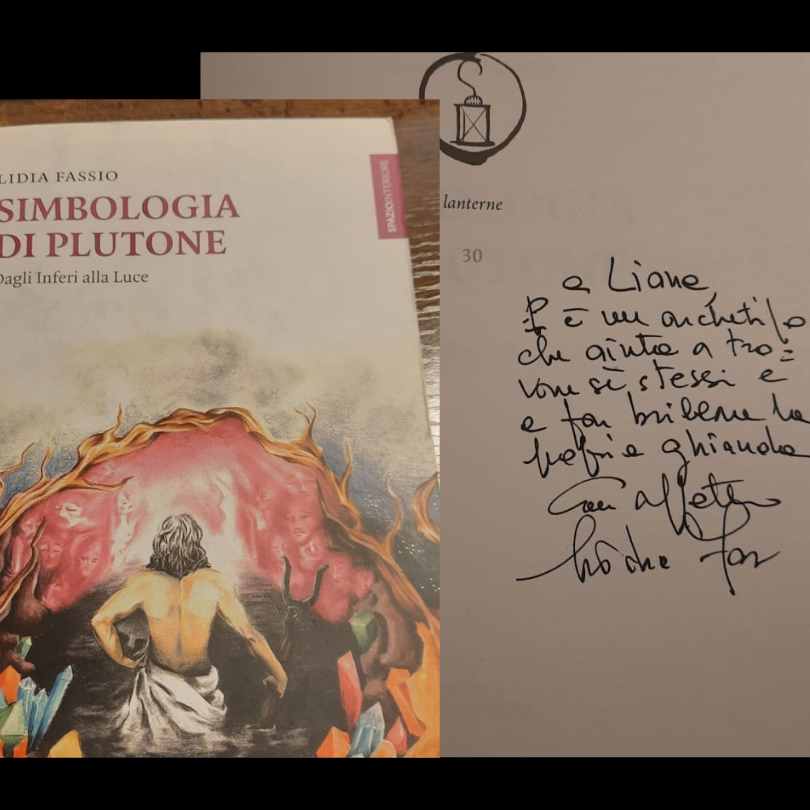 LIDIA FASSIO
SIMBOLOGIA
DI PLUTONE
Dagli Inferi alla Luce
SPAZIO INTERIORE
lanterne
30
a Liana,
è un archetipo
che aiuta a tro=
vare sè stessi e
e far brillare la
propria ghianda
Con affetto